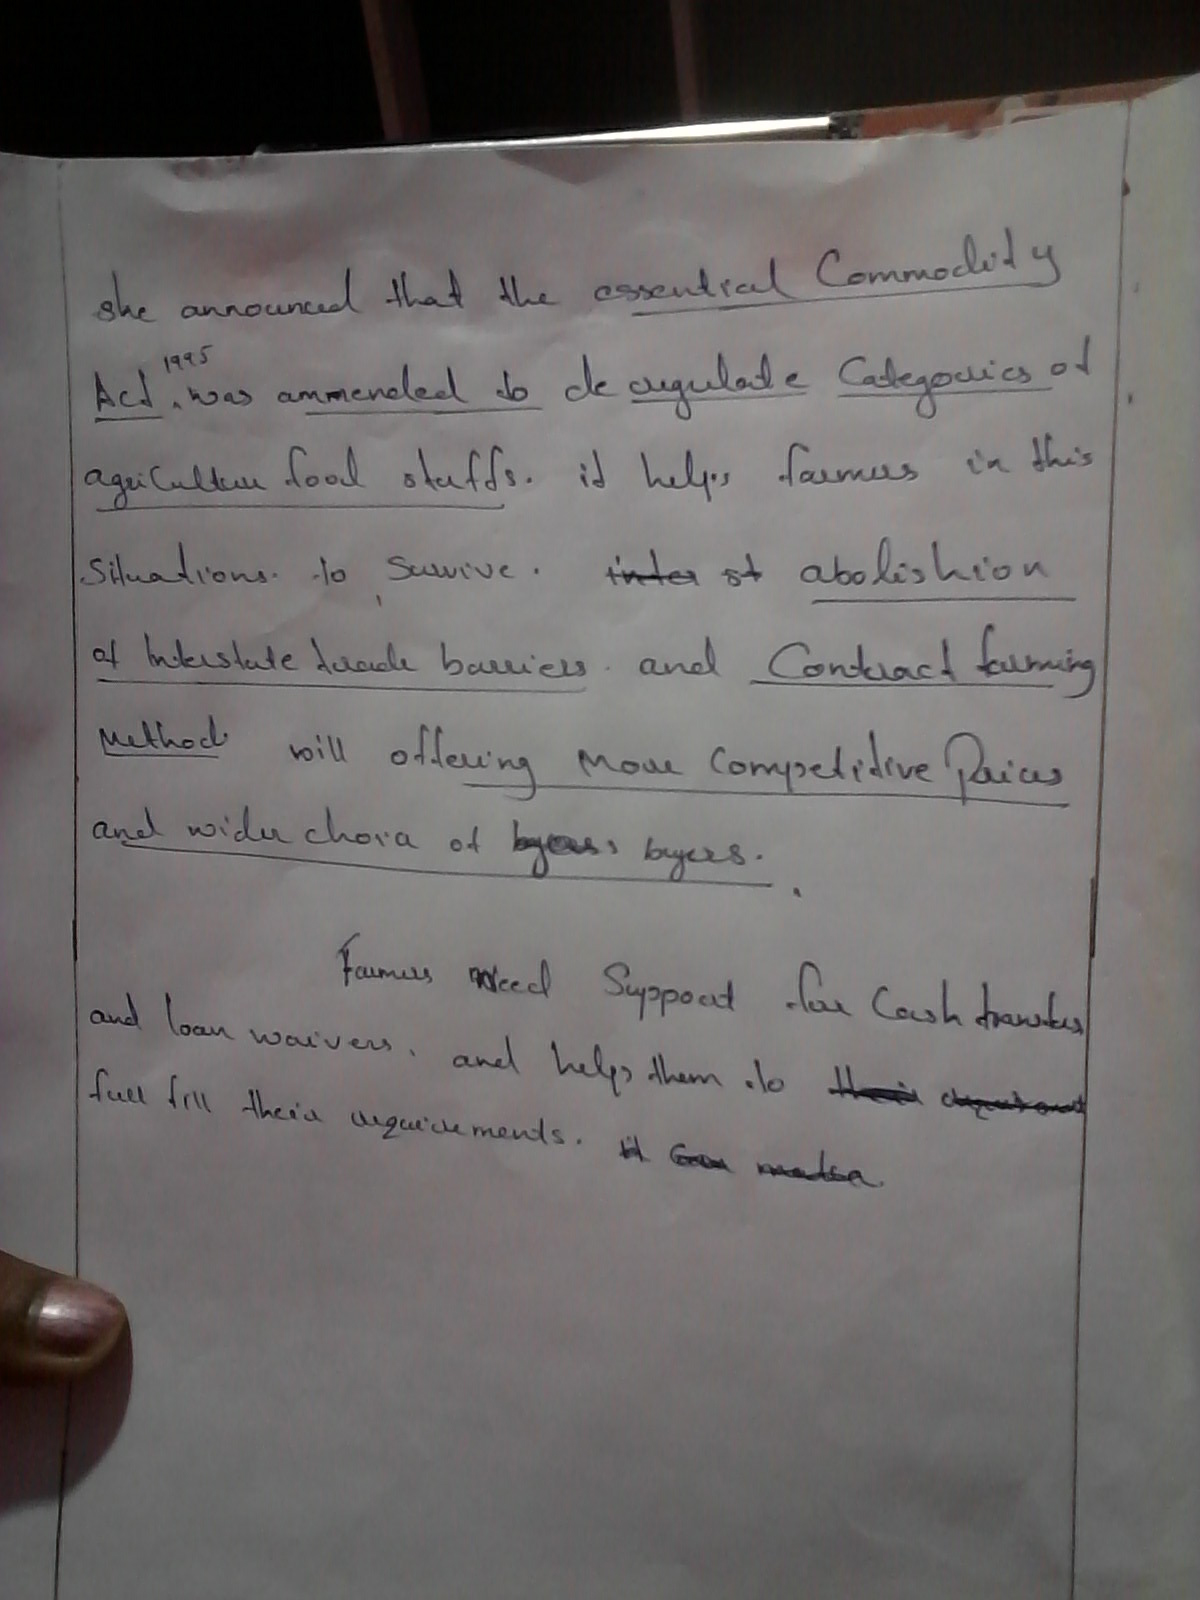 she announced that the essential Commodity
1995
Act, was ammended to de regulate Categories of
agriculture food stuffs. it helps farmers in this
situations. to survive. inter st abolishion
of Interstate trade barriers. and Contract farming
Method will offering more Competitive Prices
and wider choia of byers byers.
Farmers Need Support for Cash transfers
and loan waivers. and helps them to their
full fill their requirements. it can